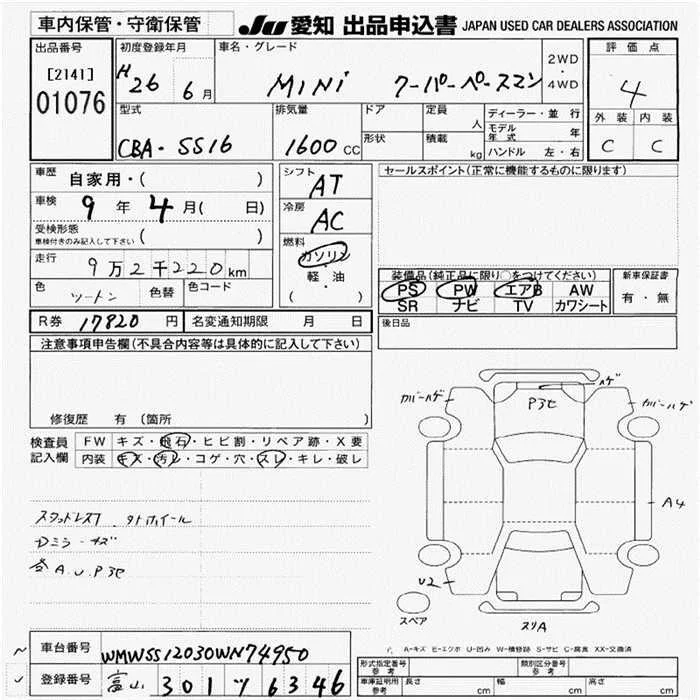 車内保管・守衛保管
JU 愛知 出品申込書 JAPAN USED CAR DEALERS ASSOCIATION
出品番号
[2141]
01076
初度登録年月
H26 6月
車名・グレード
MINI クーパーペースマン
2WD
・
4WD
評価点
4
外装 内装
C C
型式
CBA-SS16
排気量
1600 CC
ドア
形状
定員
人
積載
kg
ディーラー・並行
モデル年式 年
ハンドル 左・右
車歴
自家用・( )
車検
9年4月( 日)
受検形態
車検付きのみ記入して下さい ( )
走行
9万2千220km
色
ツートン
色替
色コード
シフト
AT
冷房
AC
燃料
ガソリン
軽・油
( )
セールスポイント(正常に機能するものに限ります)
装備品(純正品に限り○をつけてください)
PS PW エアB AW
SR ナビ TV カワシート
新車保証書
有・無
R券 17820 円
名変通知期限 月 日
後日品
注意事項申告欄(不具合内容等は具体的に記入して下さい)
修復歴 有 (箇所 )
検査員
記入欄
FW キズ・飛石・ヒビ割・リペア跡・X要
内装 キズ・汚レ・コゲ・穴・スレ・キレ・破レ
スタッドレス7 外ホイール
Dミラーキズ
各A.U.P3セ
カバーハゲ
ハゲ
P3セ
カバーハゲ
A4
U2
スリA
スペア
A-キズ E-エクボ U-凹み W-補修跡 S-サビ C-腐食 XX-交換済
車台番号
WMWSS12030WN74950
登録番号
富山 301 ツ 6346
形式指定番号
参考
類別区分番号
参考
車庫証明用
参考
長さ cm
幅 cm
高さ cm